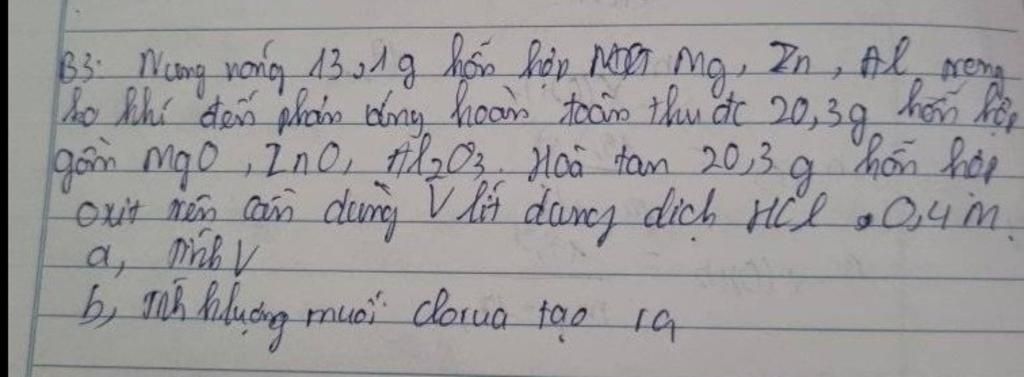 B3: Nung nóng 13,1g hỗn hợp Mg, Zn, Al trong
ko khí đến phản ứng hoàn toàn thu đc 20,3g hỗn hợp
gồm MgO, ZnO, Al2O3. Hoà tan 20,3 g hỗn hợp
oxit trên cần dùng V lít dung dịch HCl 0,4M.
a, Tính V
b, Tính klượng muối clorua tạo ra